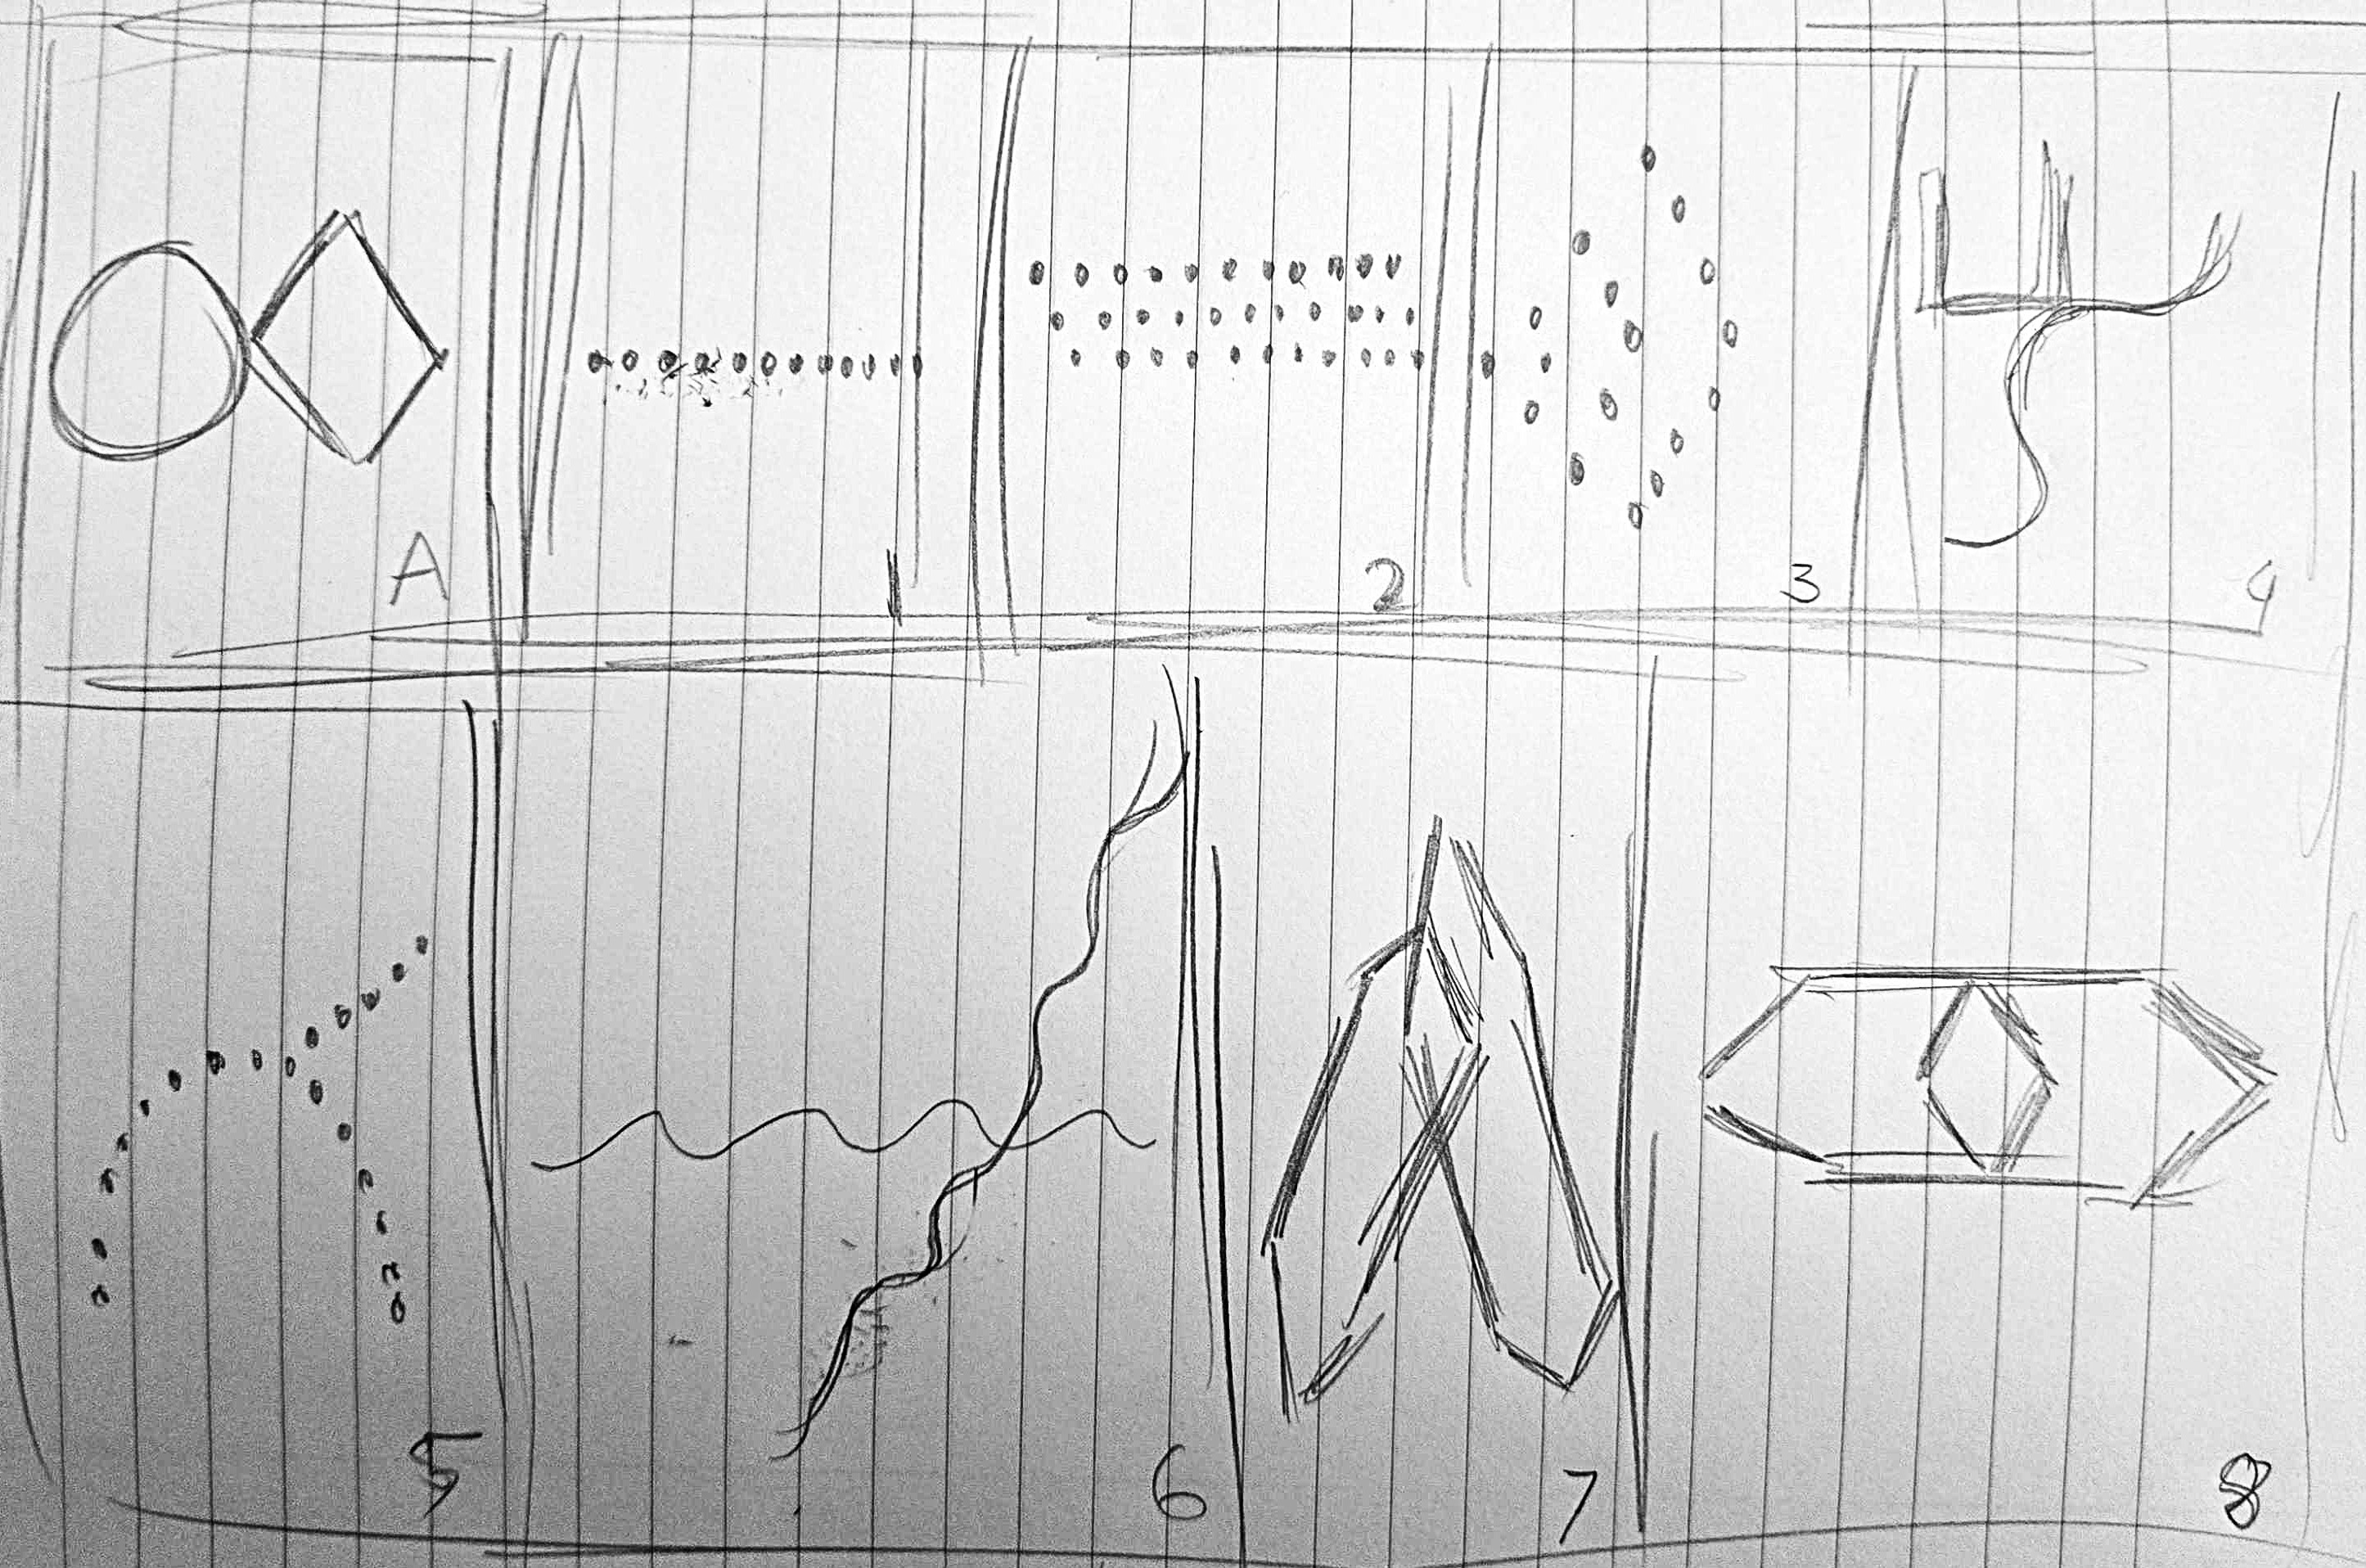 A 1 2 3 4
5 6 7 8